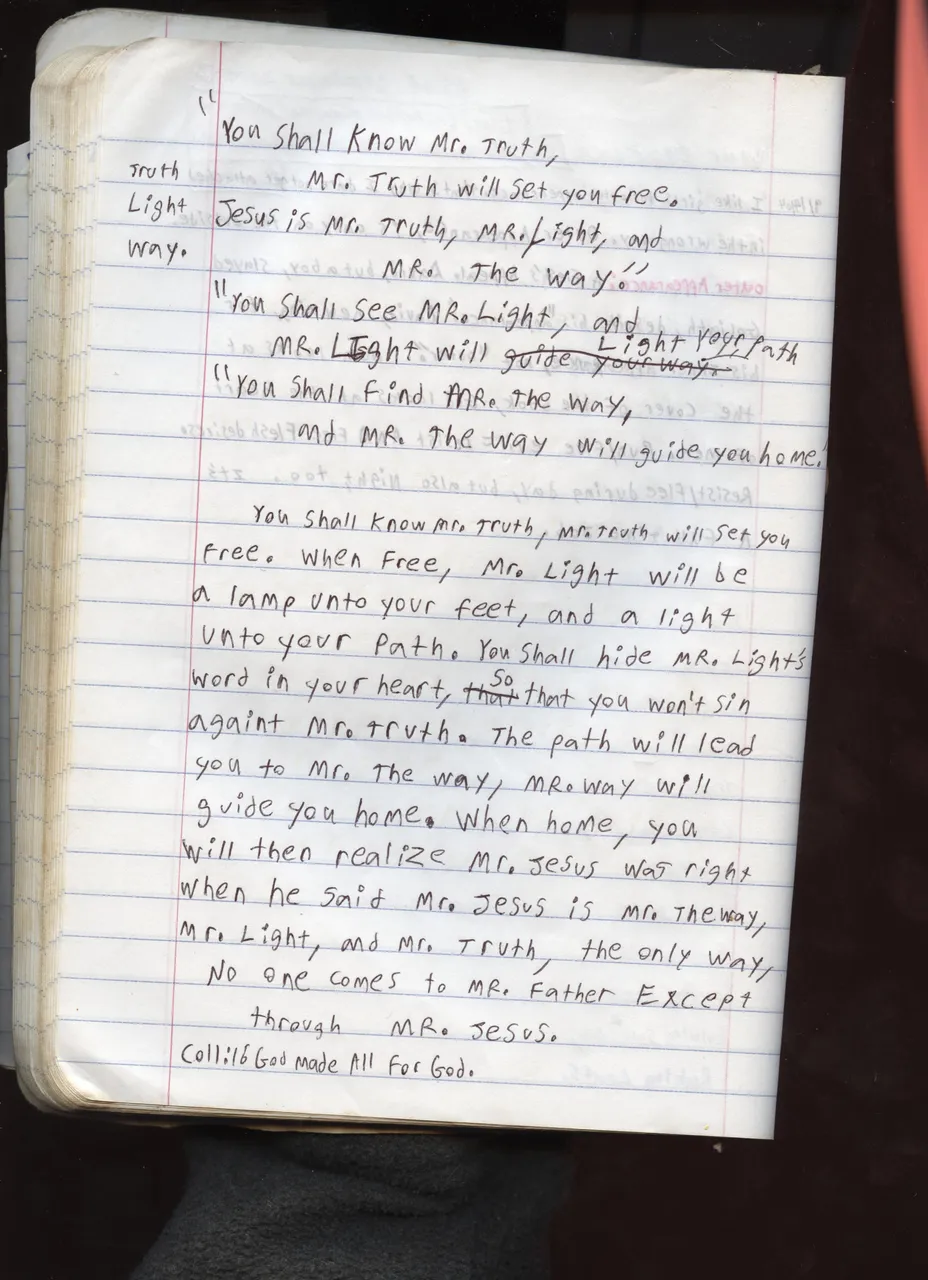 "You Shall Know Mr. Truth,
Mr. Truth will set you free.
Truth
Light
way.
Jesus is Mr. Truth, MR. Light, and
MR. The way."
"You Shall See MR. Light, and
Light your path
MR. Light will guide your way.
"You Shall Find MR. The way,
and MR. The way will guide you home."
You Shall Know Mr. Truth, Mr. Truth will set you
Free. When Free, Mr. Light will be
a lamp unto your feet, and a light
unto your Path. You Shall hide MR. Light's
So
word in your heart, that that you won't sin
againt Mr. Truth. The path will lead
you to Mr. The way, MR. way will
guide you home. When home, you
will then realize Mr. Jesus was right
when he said Mr. Jesus is Mr. The way,
Mr. Light, and Mr. Truth, the only way,
No one comes to MR. Father Except
through MR. Jesus.
Col1:16 God made All For God.